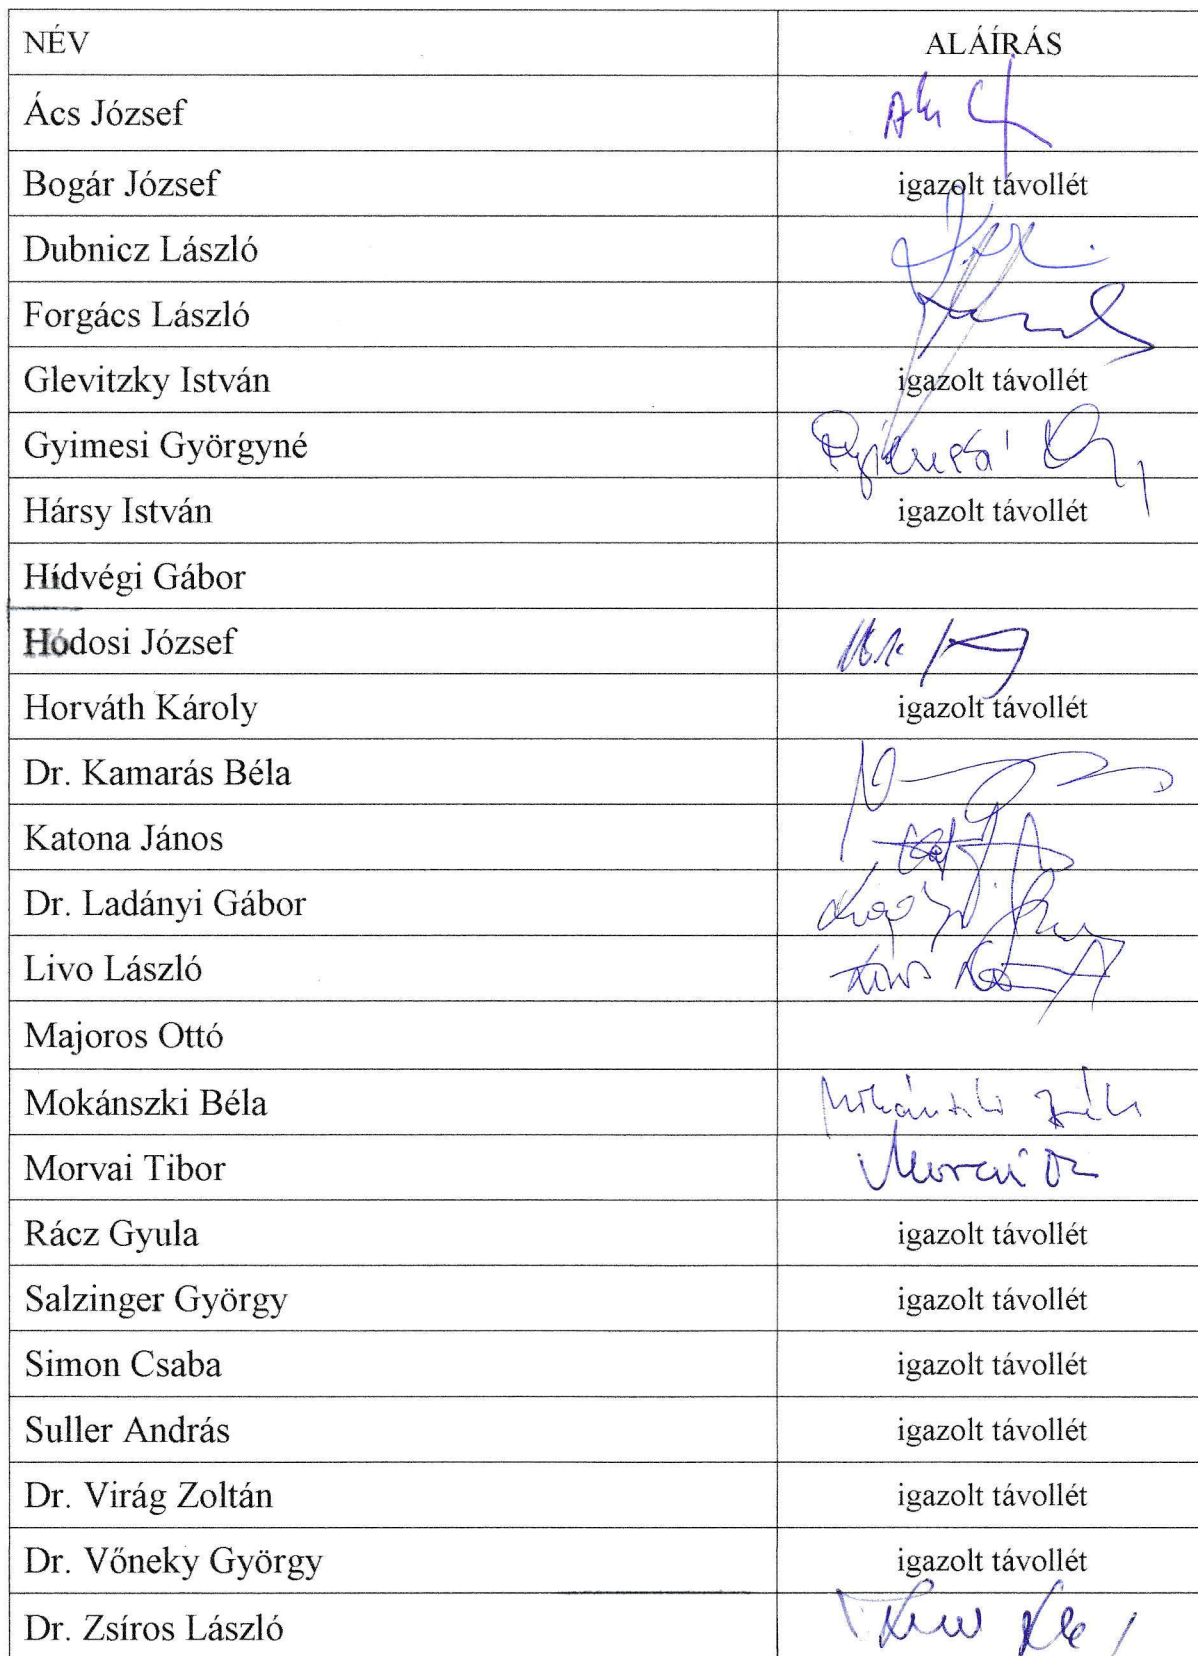 NÉV ALÁÍRÁS
Ács József
Bogár József igazolt távollét
Dubnicz László
Forgács László
Glevitzky István igazolt távollét
Gyimesi Györgyné
Hársy István igazolt távollét
Hídvégi Gábor
Hódosi József
Horváth Károly igazolt távollét
Dr. Kamarás Béla
Katona János
Dr. Ladányi Gábor
Livo László
Majoros Ottó
Mokánszki Béla
Morvai Tibor
Rácz Gyula igazolt távollét
Salzinger György igazolt távollét
Simon Csaba igazolt távollét
Suller András igazolt távollét
Dr. Virág Zoltán igazolt távollét
Dr. Vőneky György igazolt távollét
Dr. Zsíros László